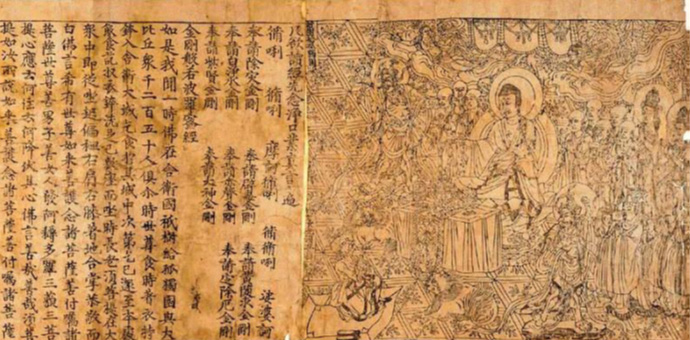 凡欲讀經先念淨口業真言一遍
脩唎 脩唎 摩訶脩唎 脩脩唎 娑婆訶
奉請除災金剛 奉請辟毒金剛 奉請黃隨求金剛
奉請白淨水金剛 奉請赤聲金剛 奉請定除災金剛
奉請紫賢金剛 奉請大神金剛
金剛般若波羅蜜經
如是我聞一時佛在舍衛國祇樹給孤獨園與大
比丘眾千二百五十人俱尒時世尊食時著衣持
鉢入舍衛大城乞食於其城中次第乞已還至本處
飯食訖收衣鉢洗足已敷座而坐時長老須菩提在大
眾中即從座起偏袒右肩右膝著地合掌恭敬而
白佛言希有世尊如來善護念諸菩薩善付囑諸
菩薩世尊善男子善女人發阿耨多羅三藐三菩
提心應云何住云何降伏其心佛言善哉善哉須菩
提如汝所說如來善護念諸菩薩善付囑諸菩薩